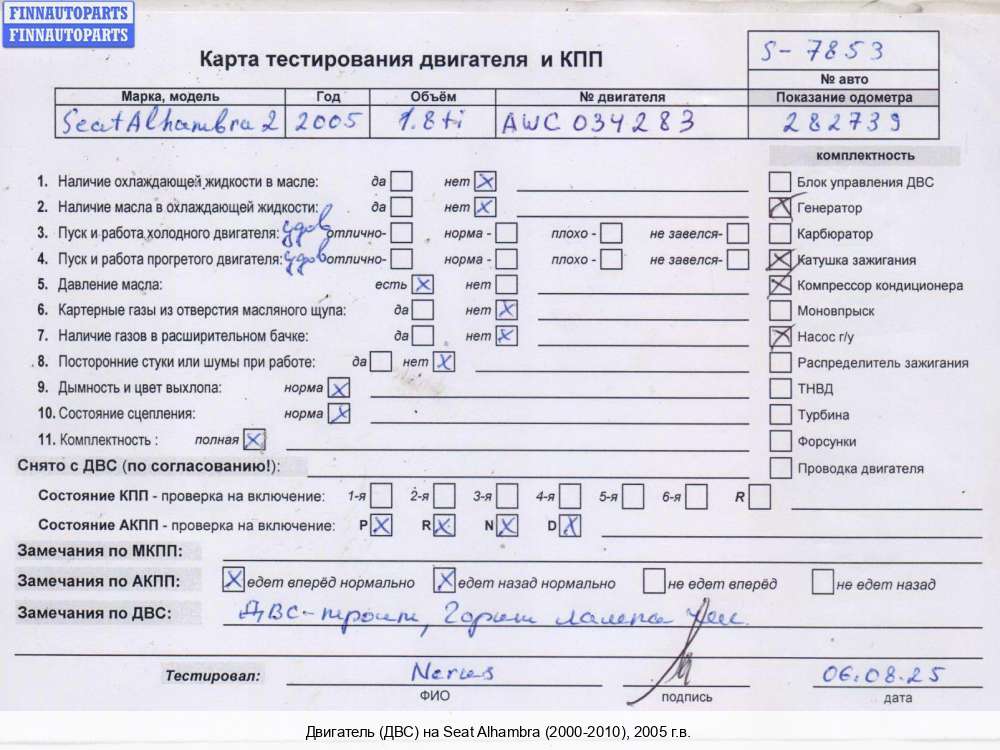 FINNAUTOPARTS
FINNAUTOPARTS
Карта тестирования двигателя и КПП
S-7853
№ авто
Марка, модель Год Объём № двигателя Показание одометра
Seat Alhambra 2 2005 1.8 ti AWC 034283 282739
комплектность
1. Наличие охлаждающей жидкости в масле: да нет X Блок управления ДВС
2. Наличие масла в охлаждающей жидкости: да нет X X Генератор
3. Пуск и работа холодного двигателя: удов отлично- норма - плохо - не завелся- Карбюратор
4. Пуск и работа прогретого двигателя: удов отлично- норма - плохо - не завелся- X Катушка зажигания
5. Давление масла: есть X нет X Компрессор кондиционера
6. Картерные газы из отверстия масляного щупа: да нет X Моновпрыск
7. Наличие газов в расширительном бачке: да нет X X Насос г/у
8. Посторонние стуки или шумы при работе: да нет X Распределитель зажигания
9. Дымность и цвет выхлопа: норма X ТНВД
10. Состояние сцепления: норма X Турбина
11. Комплектность : полная X Форсунки
Снято с ДВС (по согласованию!): Проводка двигателя
Состояние КПП - проверка на включение: 1-я 2-я 3-я 4-я 5-я 6-я R
Состояние АКПП - проверка на включение: P X R X N X D X
Замечания по МКПП:
Замечания по АКПП: X едет вперёд нормально X едет назад нормально не едет вперёд не едет назад
Замечания по ДВС: ДВС-троит, Горит лампа
Тестировал: 06.08.25
ФИО подпись дата
Двигатель (ДВС) на Seat Alhambra (2000-2010), 2005 г.в.